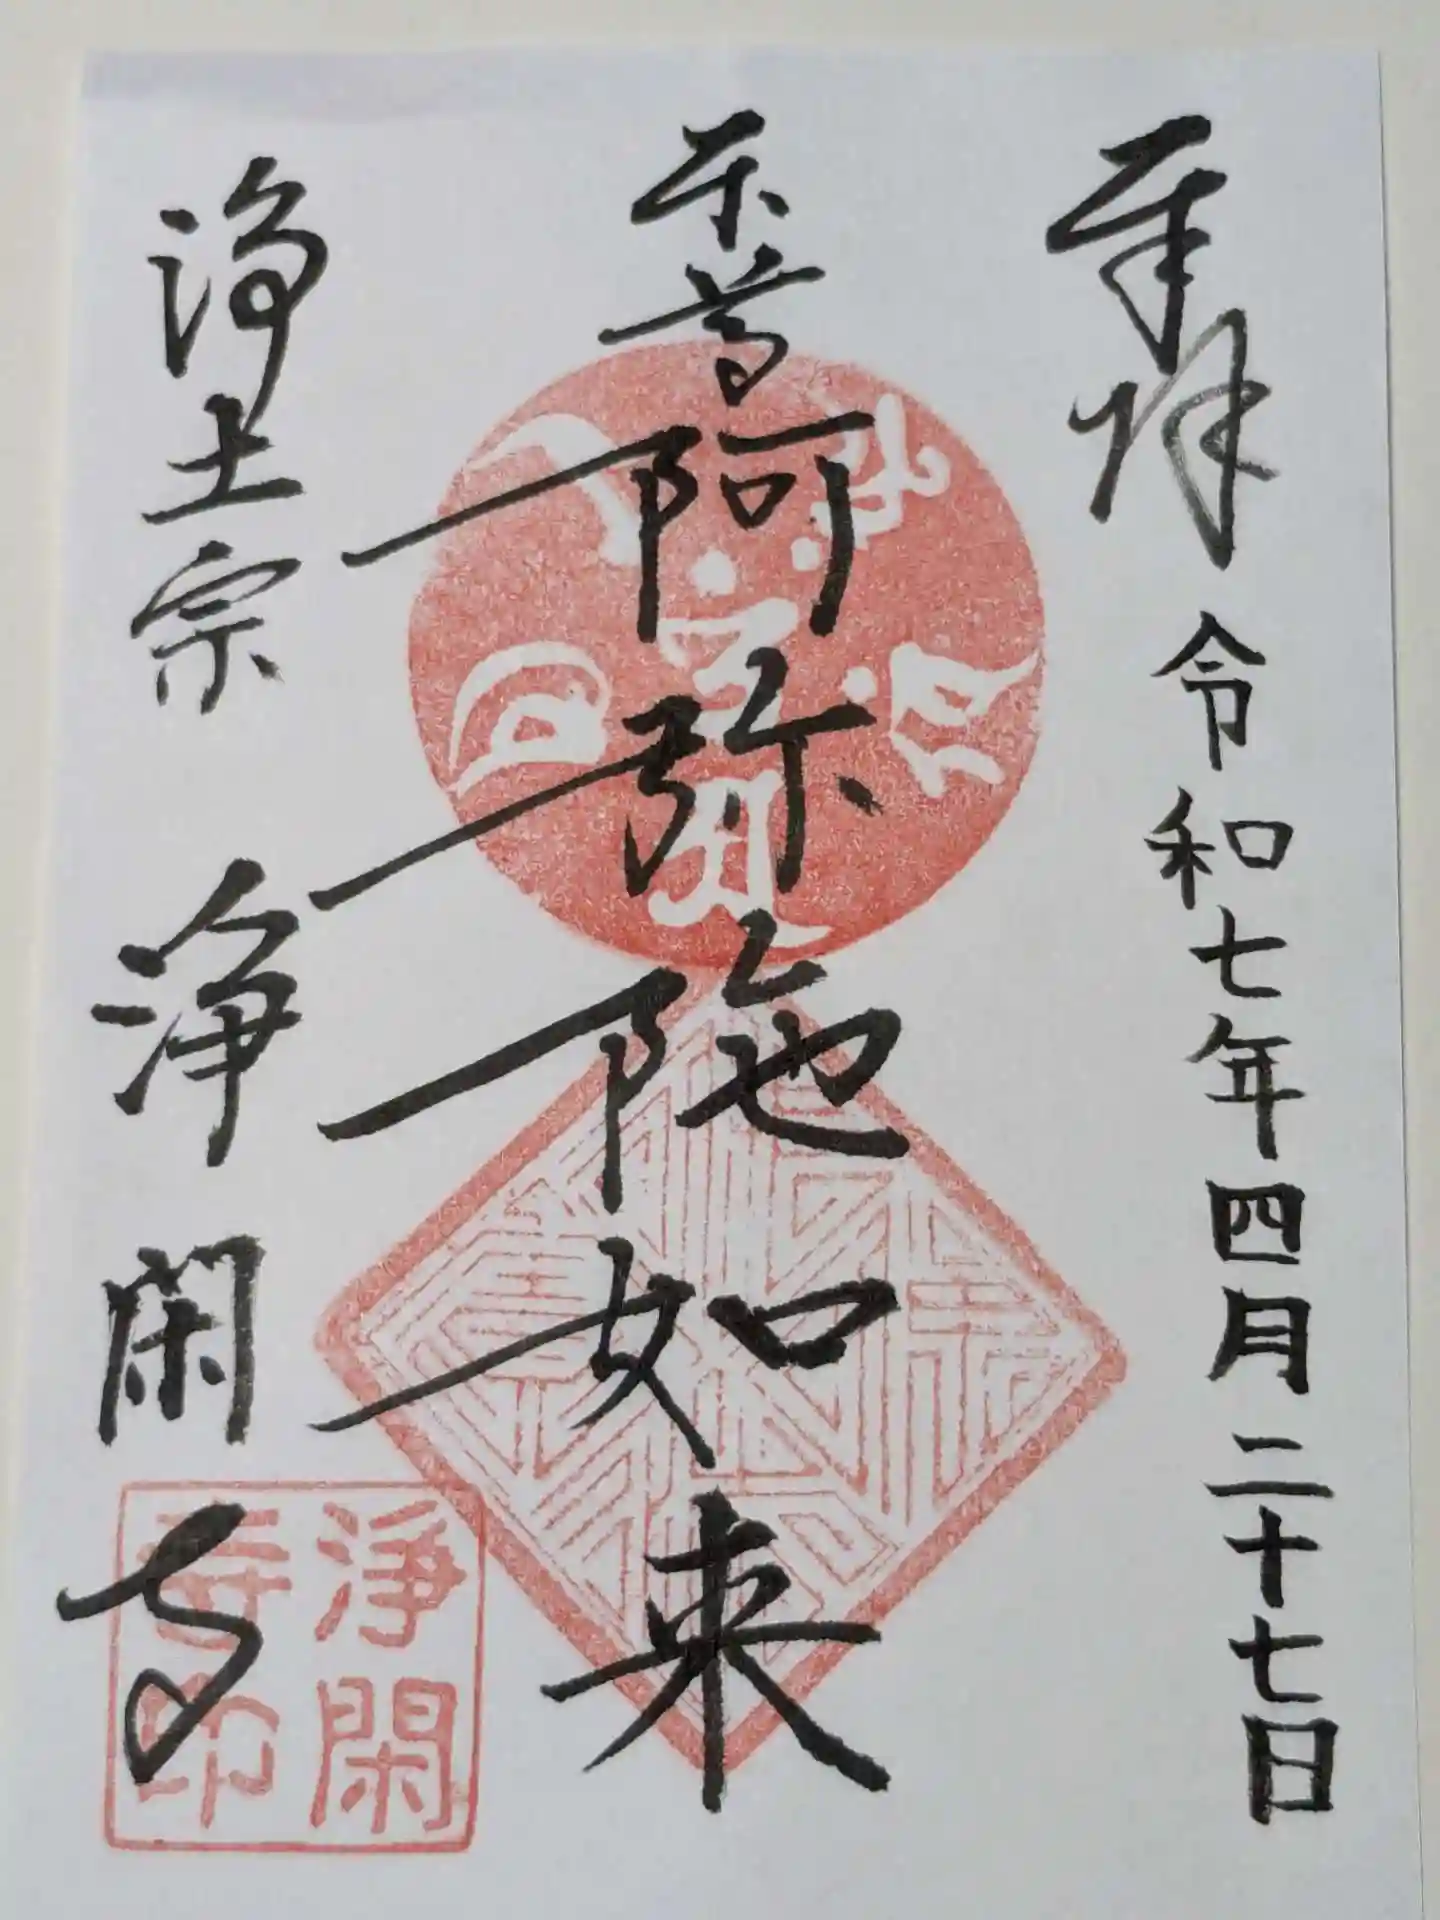 奉拝 令和七年四月二十七日
本尊 阿弥陀如来
浄土宗 浄閑寺
淨閑
寺印